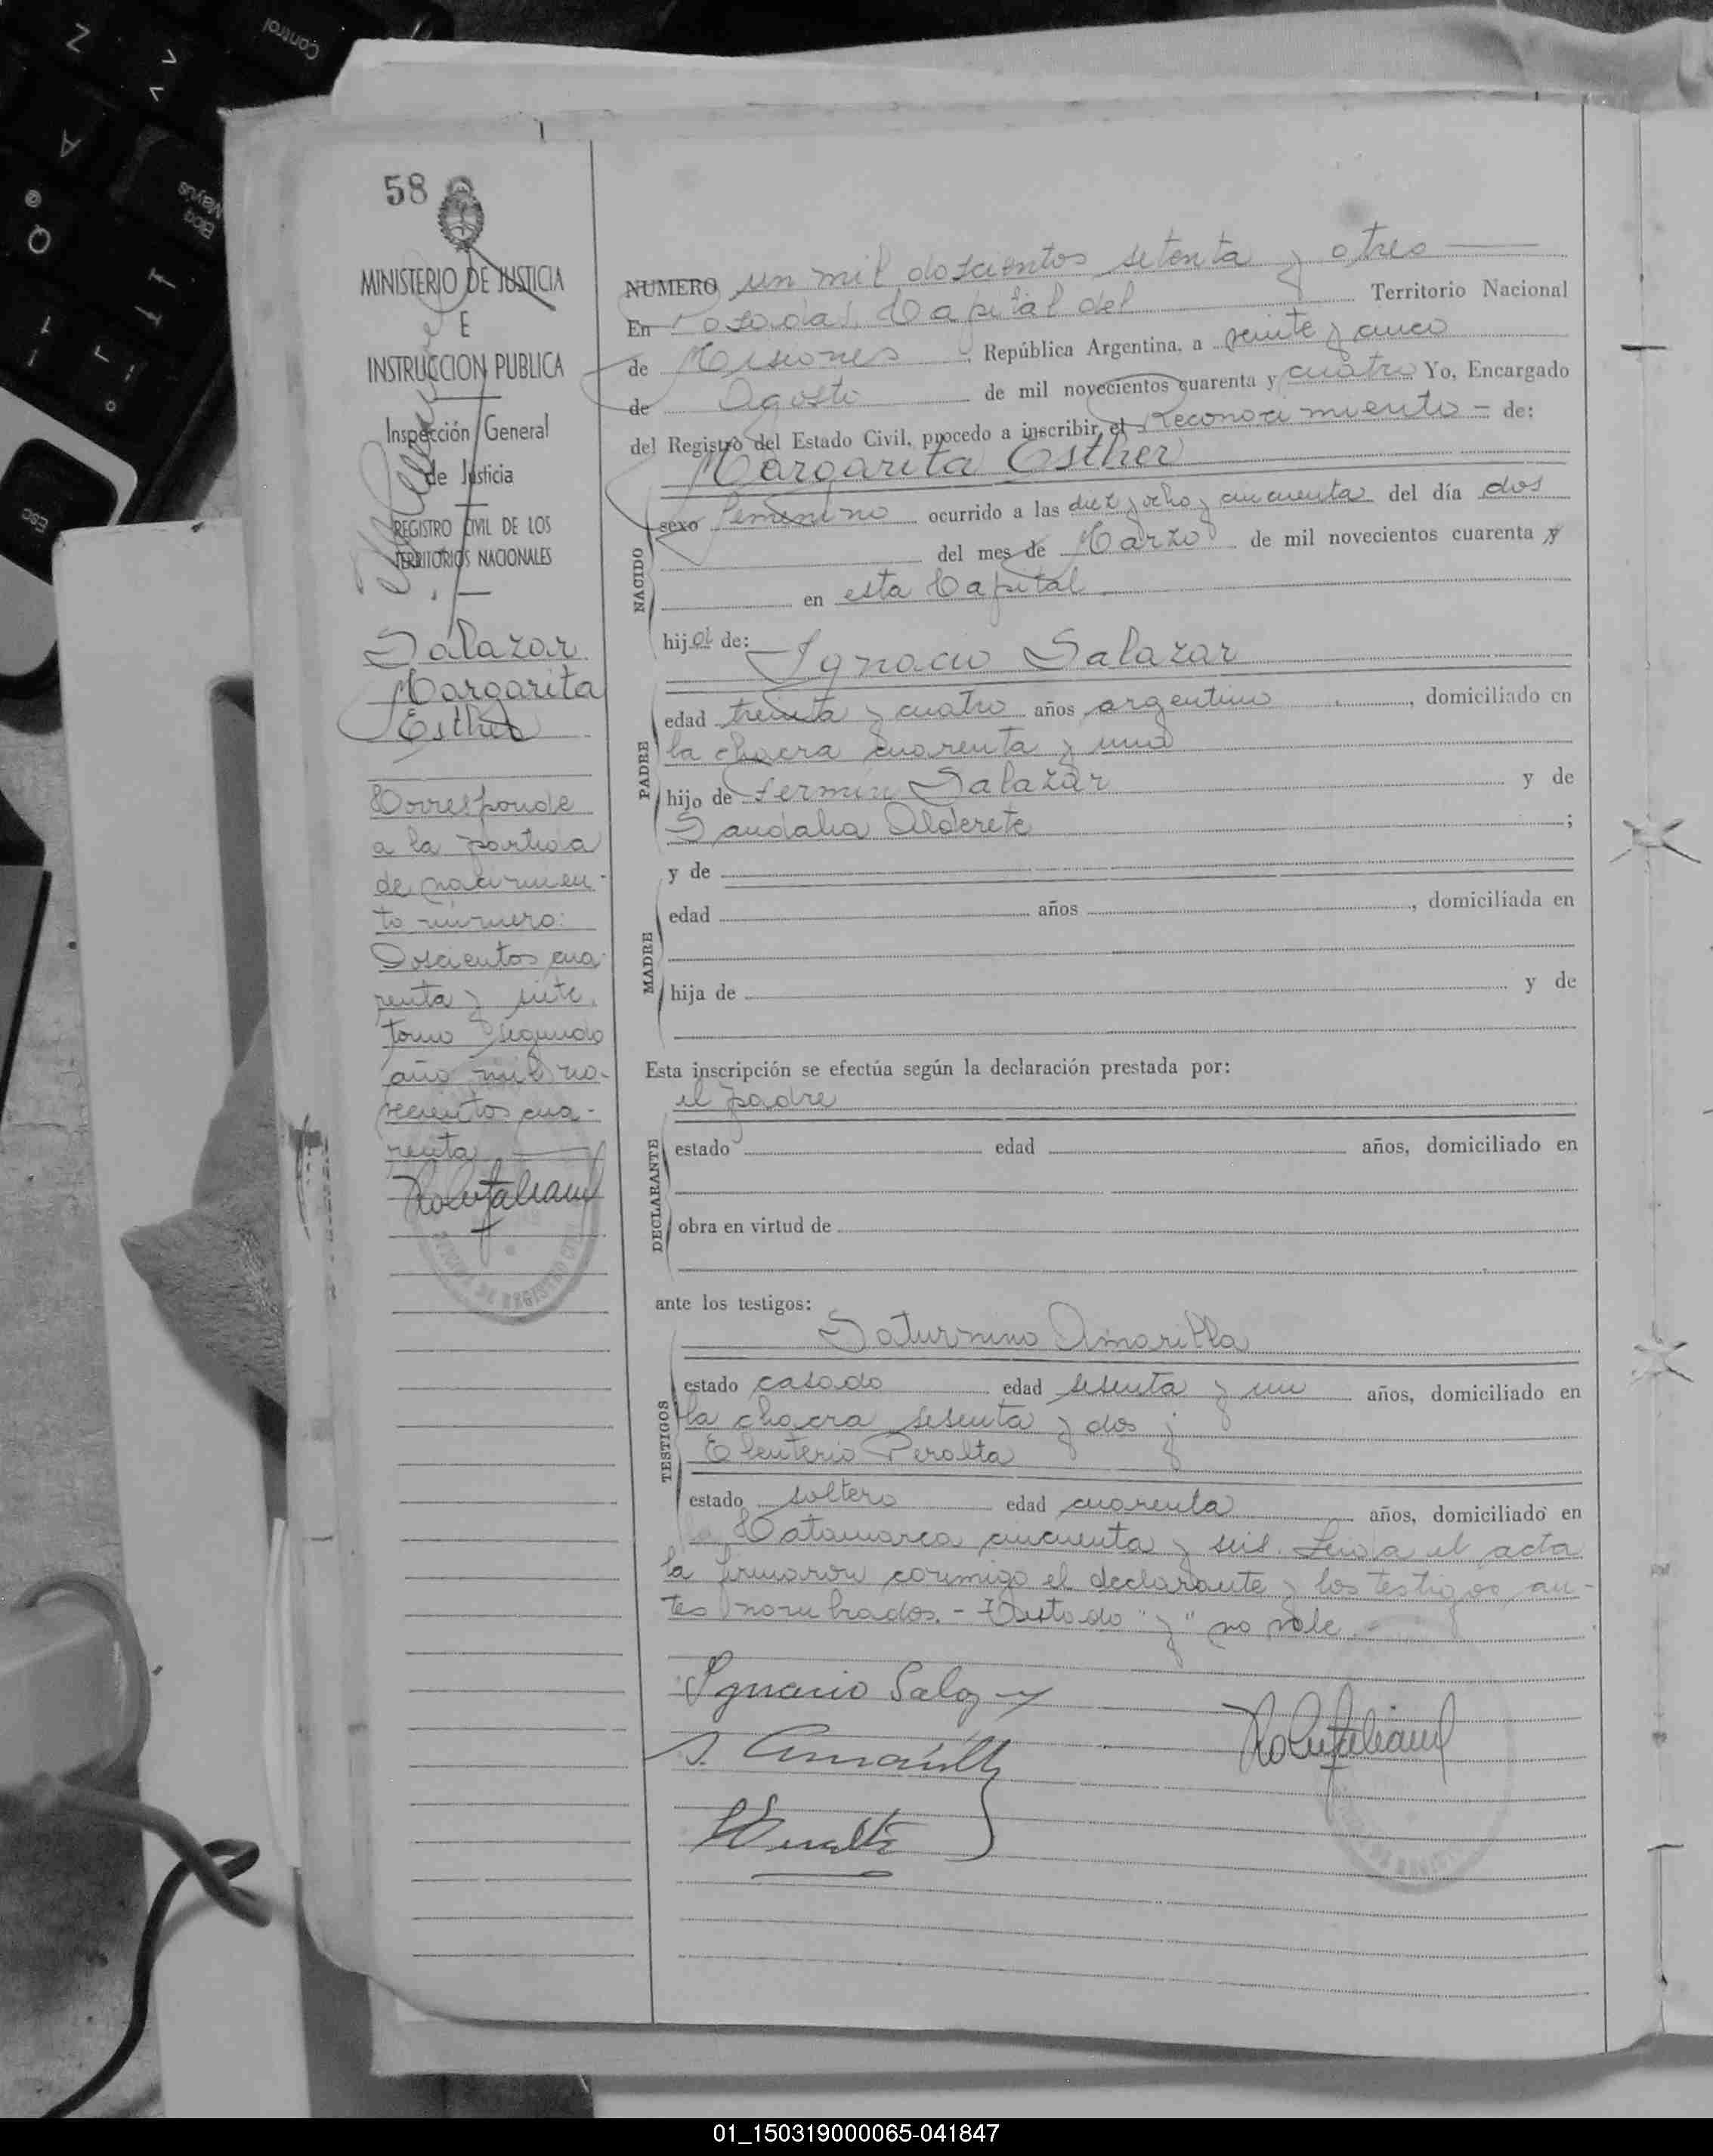 58
MINISTERIO DE JUSTICIA
E
INSTRUCCION PUBLICA
Inspección General
de Justicia
REGISTRO CIVIL DE LOS
TERRITORIOS NACIONALES
Salazar
Margarita
Esther
Corresponde
a la partida
de nacimien-
to número:
Doscientos cua-
renta y siete,
tomo segundo
año mil no-
vecientos cua-
renta
NUMERO un mil doscientos setenta y tres
En Posadas, Capital del Territorio Nacional
de Misiones, República Argentina, a veinte y cinco
de Agosto de mil novecientos cuarenta y cuatro Yo, Encargado
del Registro del Estado Civil, procedo a inscribir, el Reconocimiento - de:
Margarita Esther
NACIDO
sexo femenino ocurrido a las diez y ocho y cincuenta del día dos
del mes de Marzo de mil novecientos cuarenta y
en esta Capital
hija de: Ignacio Salazar
PADRE
edad treinta y cuatro años argentino, domiciliado en
la chacra cuarenta y una
hijo de Fermín Salazar y de
Sandalia Alderete ;
y de
MADRE
edad años , domiciliada en
hija de y de
Esta inscripción se efectúa según la declaración prestada por:
el padre
DECLARANTE
estado edad años, domiciliado en
obra en virtud de
ante los testigos:
Saturnino Amarilla
TESTIGOS
estado casado edad sesenta y un años, domiciliado en
la chacra sesenta y dos y
Eleuterio Peralta
estado soltero edad cuarenta años, domiciliado en
Catamarca cincuenta y seis. Leida el acta
la firmaron conmigo el declarante y los testigos an-
tes nombrados. - Testado "y" no vale. -
Ignacio Salazar
S. Amarilla
EPeralta
01_150319000065-041847